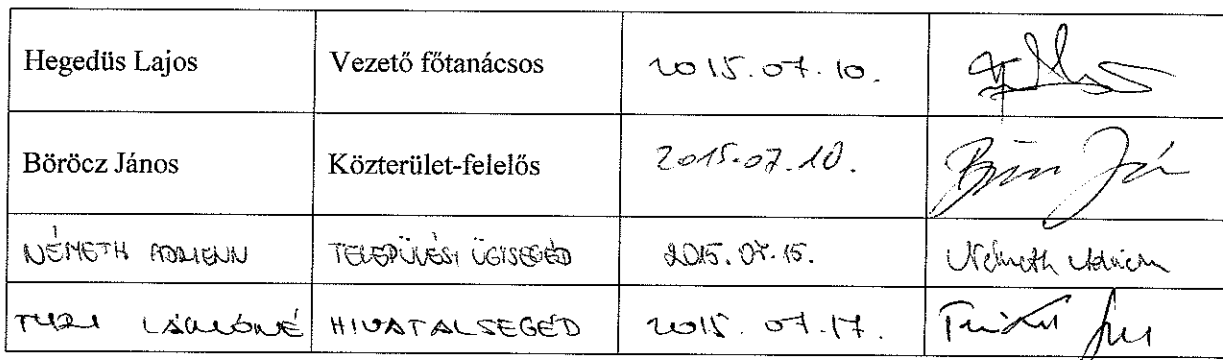 Hegedüs Lajos Vezető főtanácsos 2015.07.10.
Böröcz János Közterület-felelős 2015.07.10.
NÉMETH ADRIENN TELEPÜLÉSI ÜGYSEGÉD 2015.07.15. Németh Adrienn
HIVATALSEGÉD 2015.07.17.